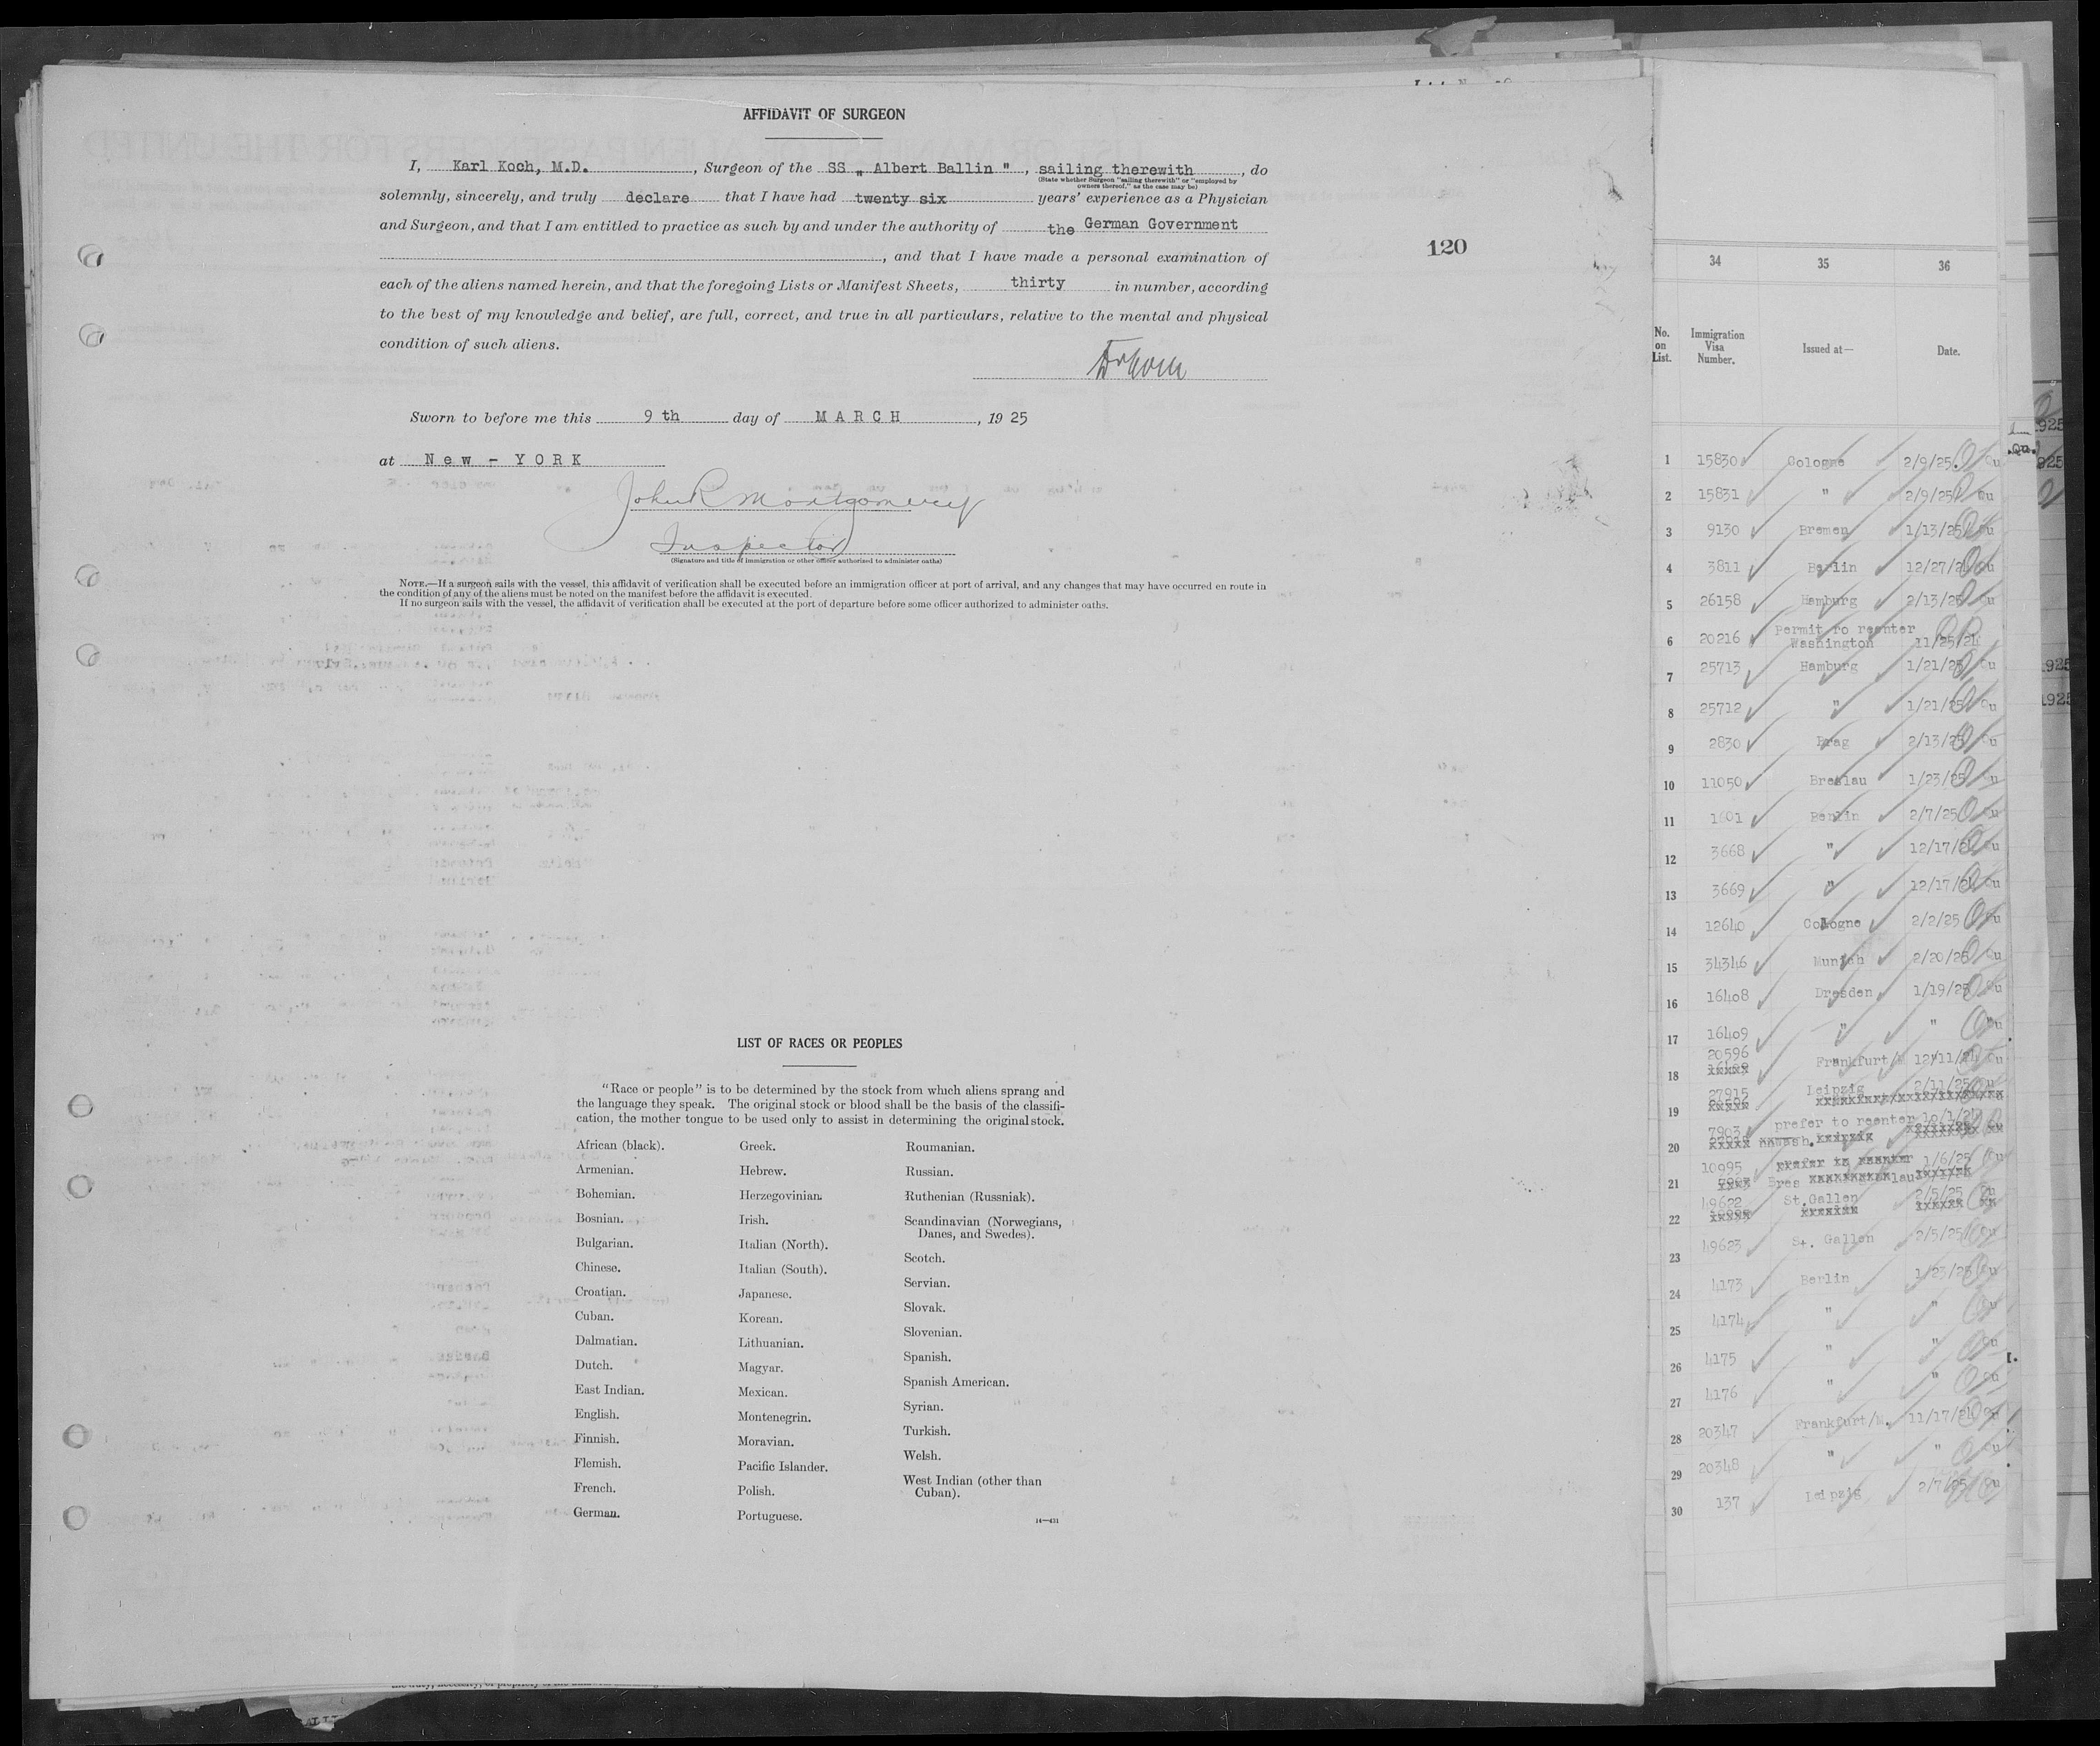 AFFIDAVIT OF SURGEON
I, Karl Koch, M.D. , Surgeon of the SS „ Albert Ballin " , sailing therewith , do
(State whether Surgeon "sailing therewith" or "employed by
owners thereof," as the case may be)
solemnly, sincerely, and truly declare that I have had twenty six years' experience as a Physician
and Surgeon, and that I am entitled to practice as such by and under the authority of the German Government
, and that I have made a personal examination of
each of the aliens named herein, and that the foregoing Lists or Manifest Sheets, thirty in number, according
to the best of my knowledge and belief, are full, correct, and true in all particulars, relative to the mental and physical
condition of such aliens.
120
Sworn to before me this 9 th day of MARCH , 19 25
at New - YORK
John R Montgomery
Inspector
(Signature and title of immigration or other officer authorized to administer oaths)
NOTE.—If a surgeon sails with the vessel, this affidavit of verification shall be executed before an immigration officer at port of arrival, and any changes that may have occurred en route in
the condition of any of the aliens must be noted on the manifest before the affidavit is executed.
If no surgeon sails with the vessel, the affidavit of verification shall be executed at the port of departure before some officer authorized to administer oaths.
LIST OF RACES OR PEOPLES
"Race or people" is to be determined by the stock from which aliens sprang and
the language they speak. The original stock or blood shall be the basis of the classifi-
cation, the mother tongue to be used only to assist in determining the original stock.
African (black).
Armenian.
Bohemian.
Bosnian.
Bulgarian.
Chinese.
Croatian.
Cuban.
Dalmatian.
Dutch.
East Indian.
English.
Finnish.
Flemish.
French.
German.
Greek.
Hebrew.
Herzegovinian.
Irish.
Italian (North).
Italian (South).
Japanese.
Korean.
Lithuanian.
Magyar.
Mexican.
Montenegrin.
Moravian.
Pacific Islander.
Polish.
Portuguese.
Roumanian.
Russian.
Ruthenian (Russniak).
Scandinavian (Norwegians,
Danes, and Swedes).
Scotch.
Servian.
Slovak.
Slovenian.
Spanish.
Spanish American.
Syrian.
Turkish.
Welsh.
West Indian (other than
Cuban).
14—431
34 35 36
No. on List. Immigration Visa Number. Issued at— Date.
1 15830 Cologne 2/9/25 Qu
2 15831 " 2/9/25 Qu
3 9130 Bremen 1/13/25 Qu
4 3811 Berlin 12/27/24 Qu
5 26158 Hamburg 2/13/25 Qu
6 20216 Permit ro reenter Washington 11/25/24
7 25713 Hamburg 1/21/25 Qu
8 25712 " 1/21/25 Qu
9 2830 Prag 2/13/25 Qu
10 11050 Breslau 1/23/25 Qu
11 1601 Berlin 2/7/25 Qu
12 3668 " 12/17/24 Qu
13 3669 " 12/17/24 Qu
14 12640 Cologne 2/2/25 Qu
15 34346 Munich 2/20/25 Qu
16 16408 Dresden 1/19/25 Qu
17 16409 " " Qu
18 20596 Frankfurt/M 12/11/24 Qu
19 27915 Leipzig 2/11/25 Qu
20 7903 prefer to reenter Wash.
21 10995 Breslau 1/6/25 Qu
22 49622 St.Gallen 2/5/25 Qu
23 49623 St. Gallen 2/5/25 Qu
24 4173 Berlin 1/23/25 Qu
25 4174 " " Qu
26 4175 " " Qu
27 4176 " " Qu
28 20347 Frankfurt/M. 11/17/24 Qu
29 20348 " " Qu
30 137 Leipzig 2/7/25 Qu